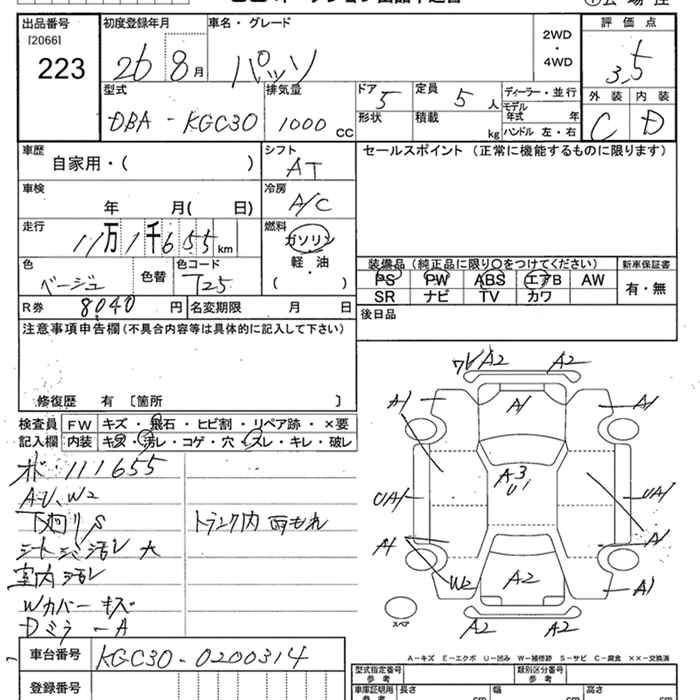 出品番号 初度登録年月 車名・グレード 評価点
[2066]
223 26 8月 パッソ 2WD・4WD 3.5
型式 排気量 ドア 5 定員 5人 ディーラー・並行 外装 内装
DBA - KGC30 1000 CC 形状 積載 kg モデル年式 年 C D
ハンドル 左・右
車歴 シフト セールスポイント (正常に機能するものに限ります)
自家用・( ) AT
車検 冷房
年 月( 日) A/C
走行 燃料
11万1千655km ガソリン
色 色替 色コード 軽・油 装備品 (純正品に限り○をつけてください) 新車保証書
ベージュ T25 ( ・ ) PS PW ABS エアB AW 有・無
SR ナビ TV カワ
R券 8,040 円 名変期限 月 日 後日品
注意事項申告欄 (不具合内容等は具体的に記入して下さい)
修復歴 有 〔箇所 〕
検査員 FW キズ・飛石・ヒビ割・リペア跡・×要
記入欄 内装 キズ・汚レ・コゲ・穴・スレ・キレ・破レ
ホ・111655
A・U、W2
下廻りS トランク内 雨もれ
シートシミ汚レ大
室内汚レ
Wカバーキズ
DミラーA
ワレA2 A2
A1 A1 A1
A3
U1
UA1 UA1
A1 A1
W2 A2 A1
A2 A2
スペア
A-キズ E-エクボ U-凹み W-補修跡 S-サビ C-腐食 ××-交換済
車台番号 KGC30-0200314
登録番号
型式指定番号 参考 類別区分番号 参考
車庫証明用 参考 長さ cm 幅 cm 高さ cm